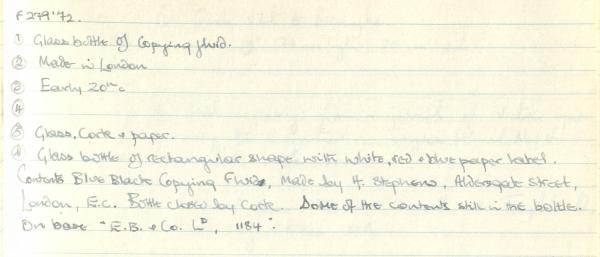 F279'72.
① Glass bottle of Copying fluid.
② Made in London
③ Early 20th c
④
⑤ Glass, Cork & paper.
Glass bottle of rectangular shape with white, red & blue paper label.
Contents Blue Black Copying Fluid, Made by H. Stephens, Aldersgate Street,
London, E.C. Bottle closed by Cork. Some of the contents still in the bottle.
On base "E.B. & Co. LD, 1184".